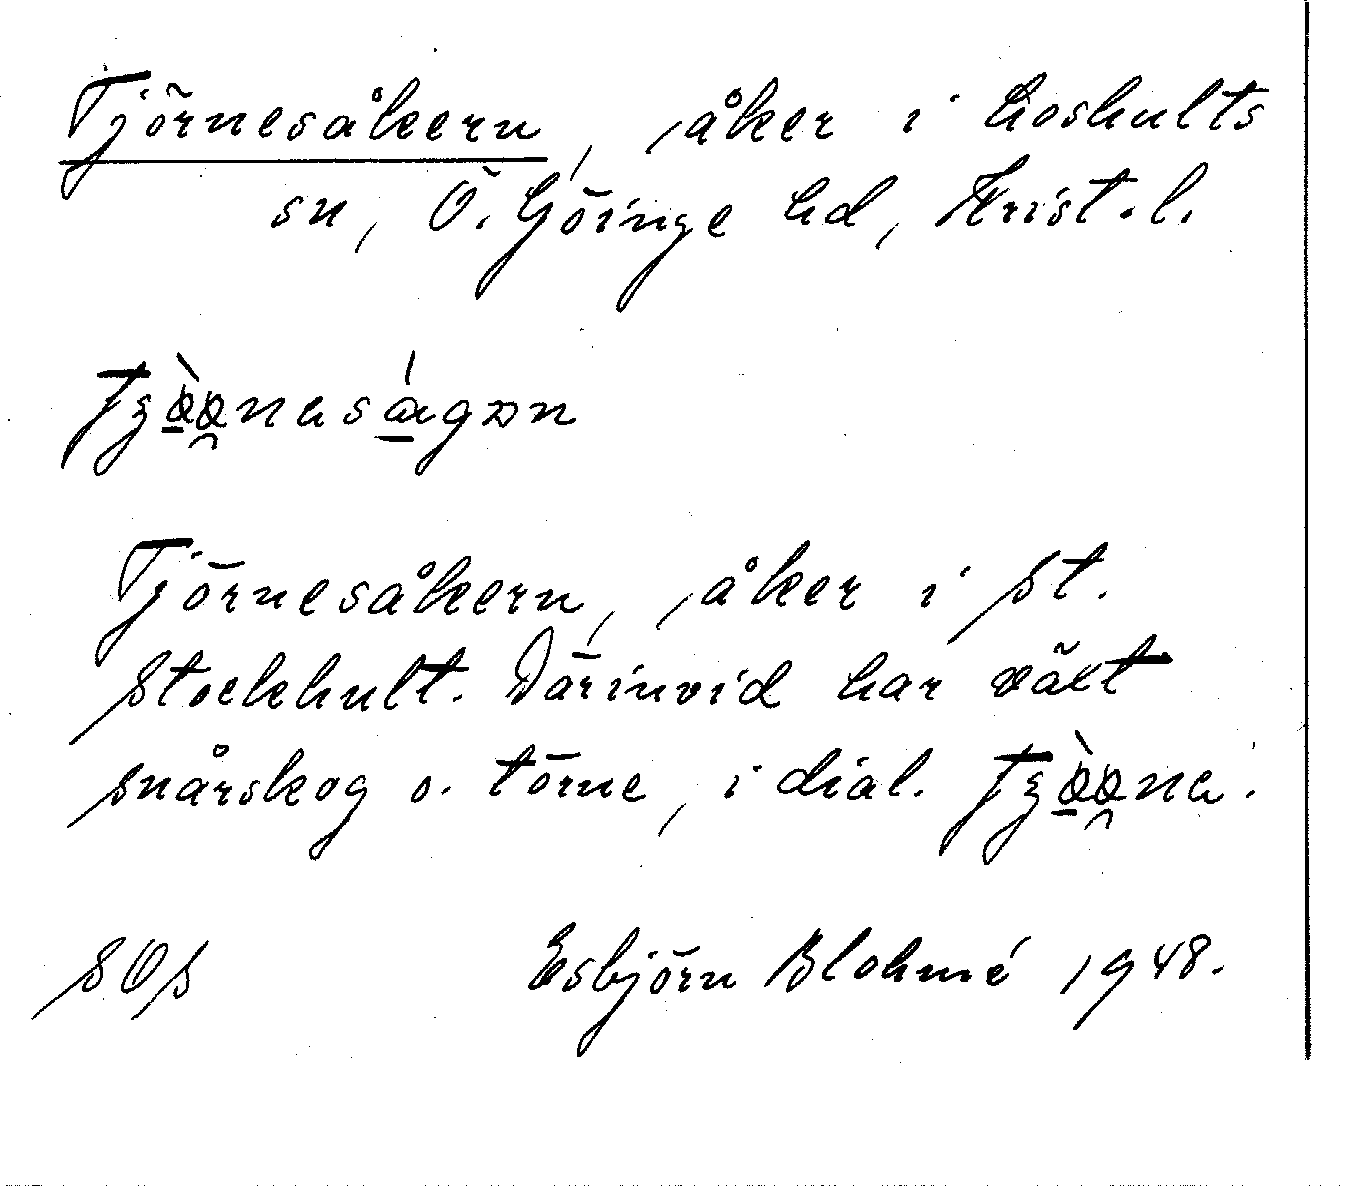 Tjörnesåkern, åker i Loshults
sn, Ö. Göinge hd, Krist. l.
Tjörnesåkern, åker i St.
Stockhult. Därinvid har växt
snårskog o. törne, i dial.
SOS Esbjörn Blohmé 1948.